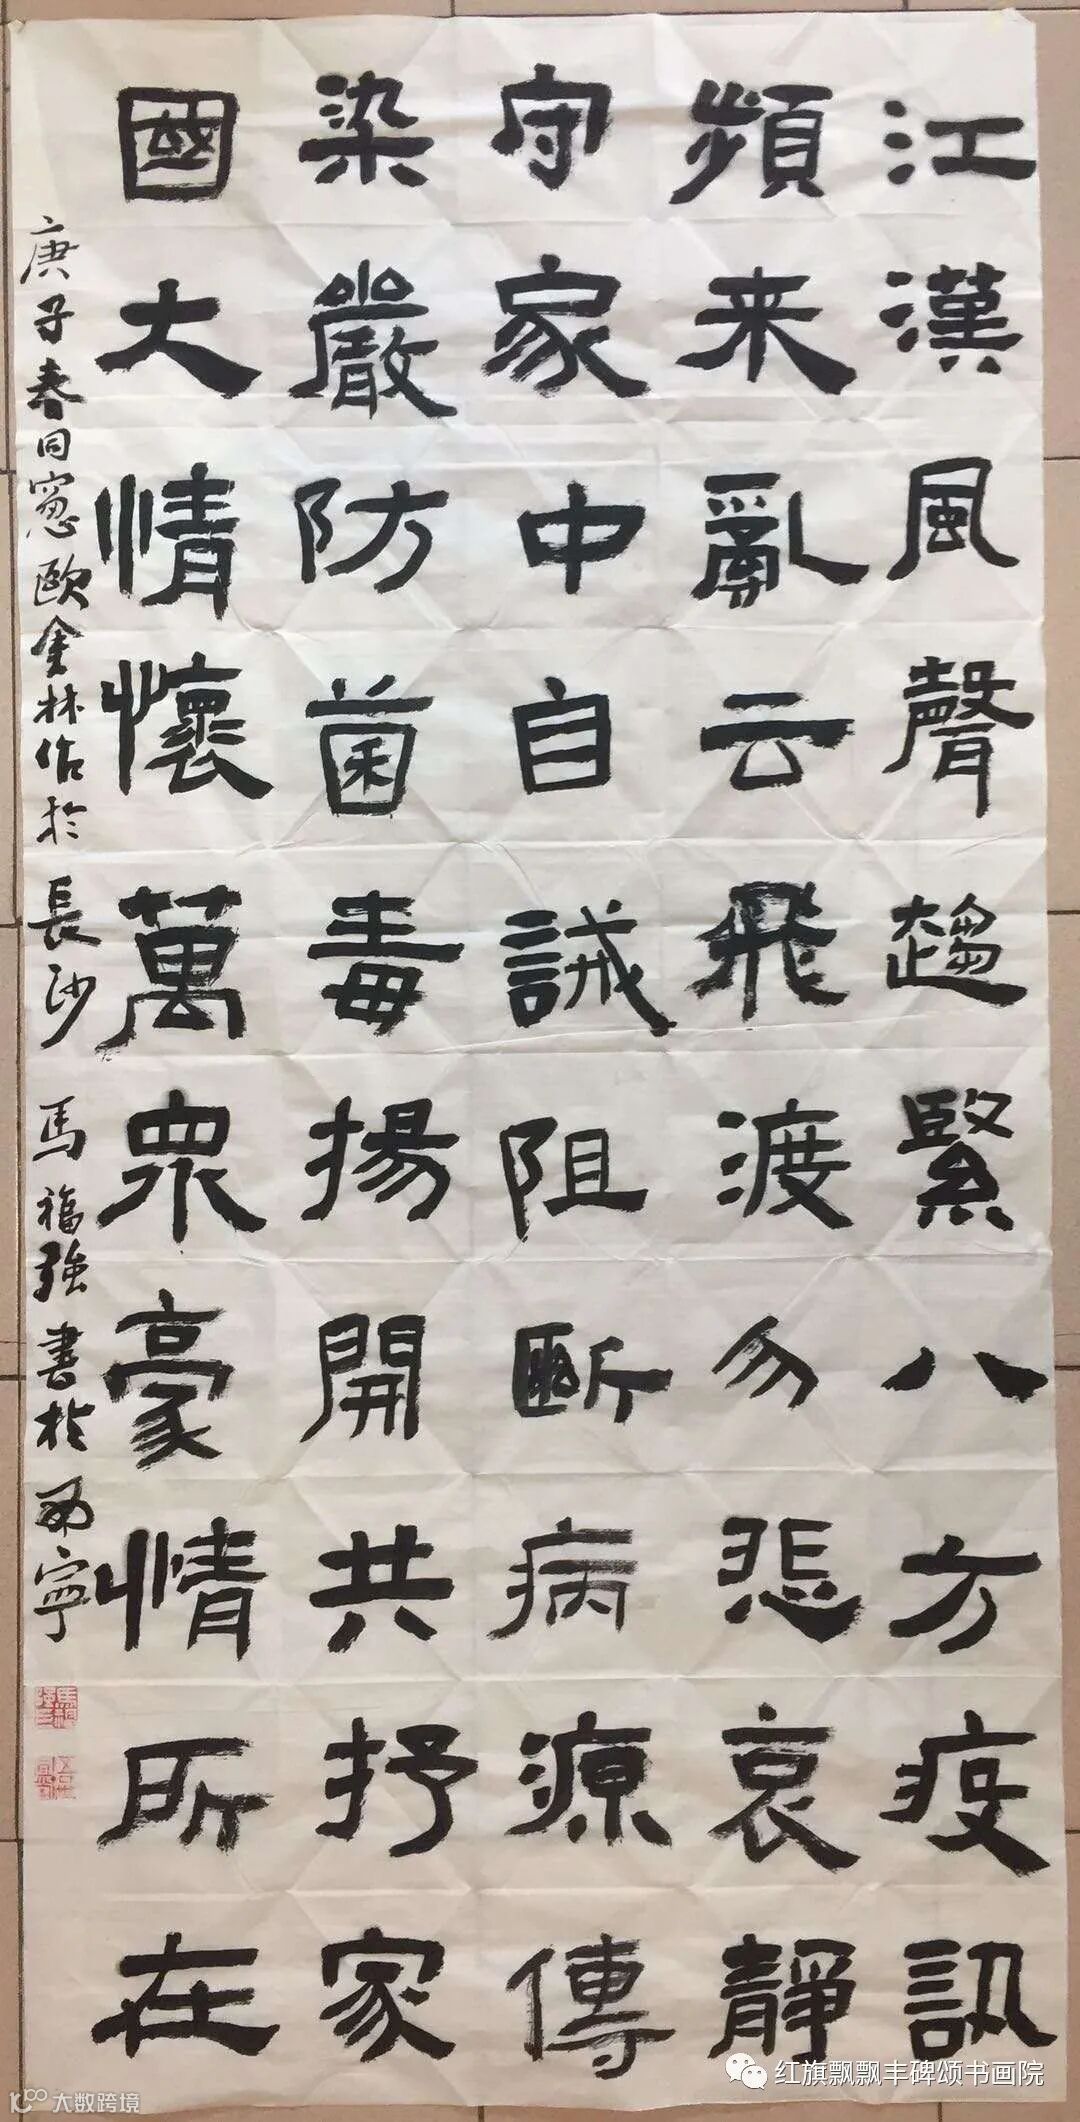 江漢風聲趨緊八方疫訊
頻来亂云飛渡勿悲哀靜
守家中自誡阻斷病源傳
染嚴防菌毒揚開共抒家
國大情懷萬眾豪情所在
庚子春同窓歐金林作於長沙 馬福强書於西寧
红旗飘飘丰碑颂书画院
大数跨境